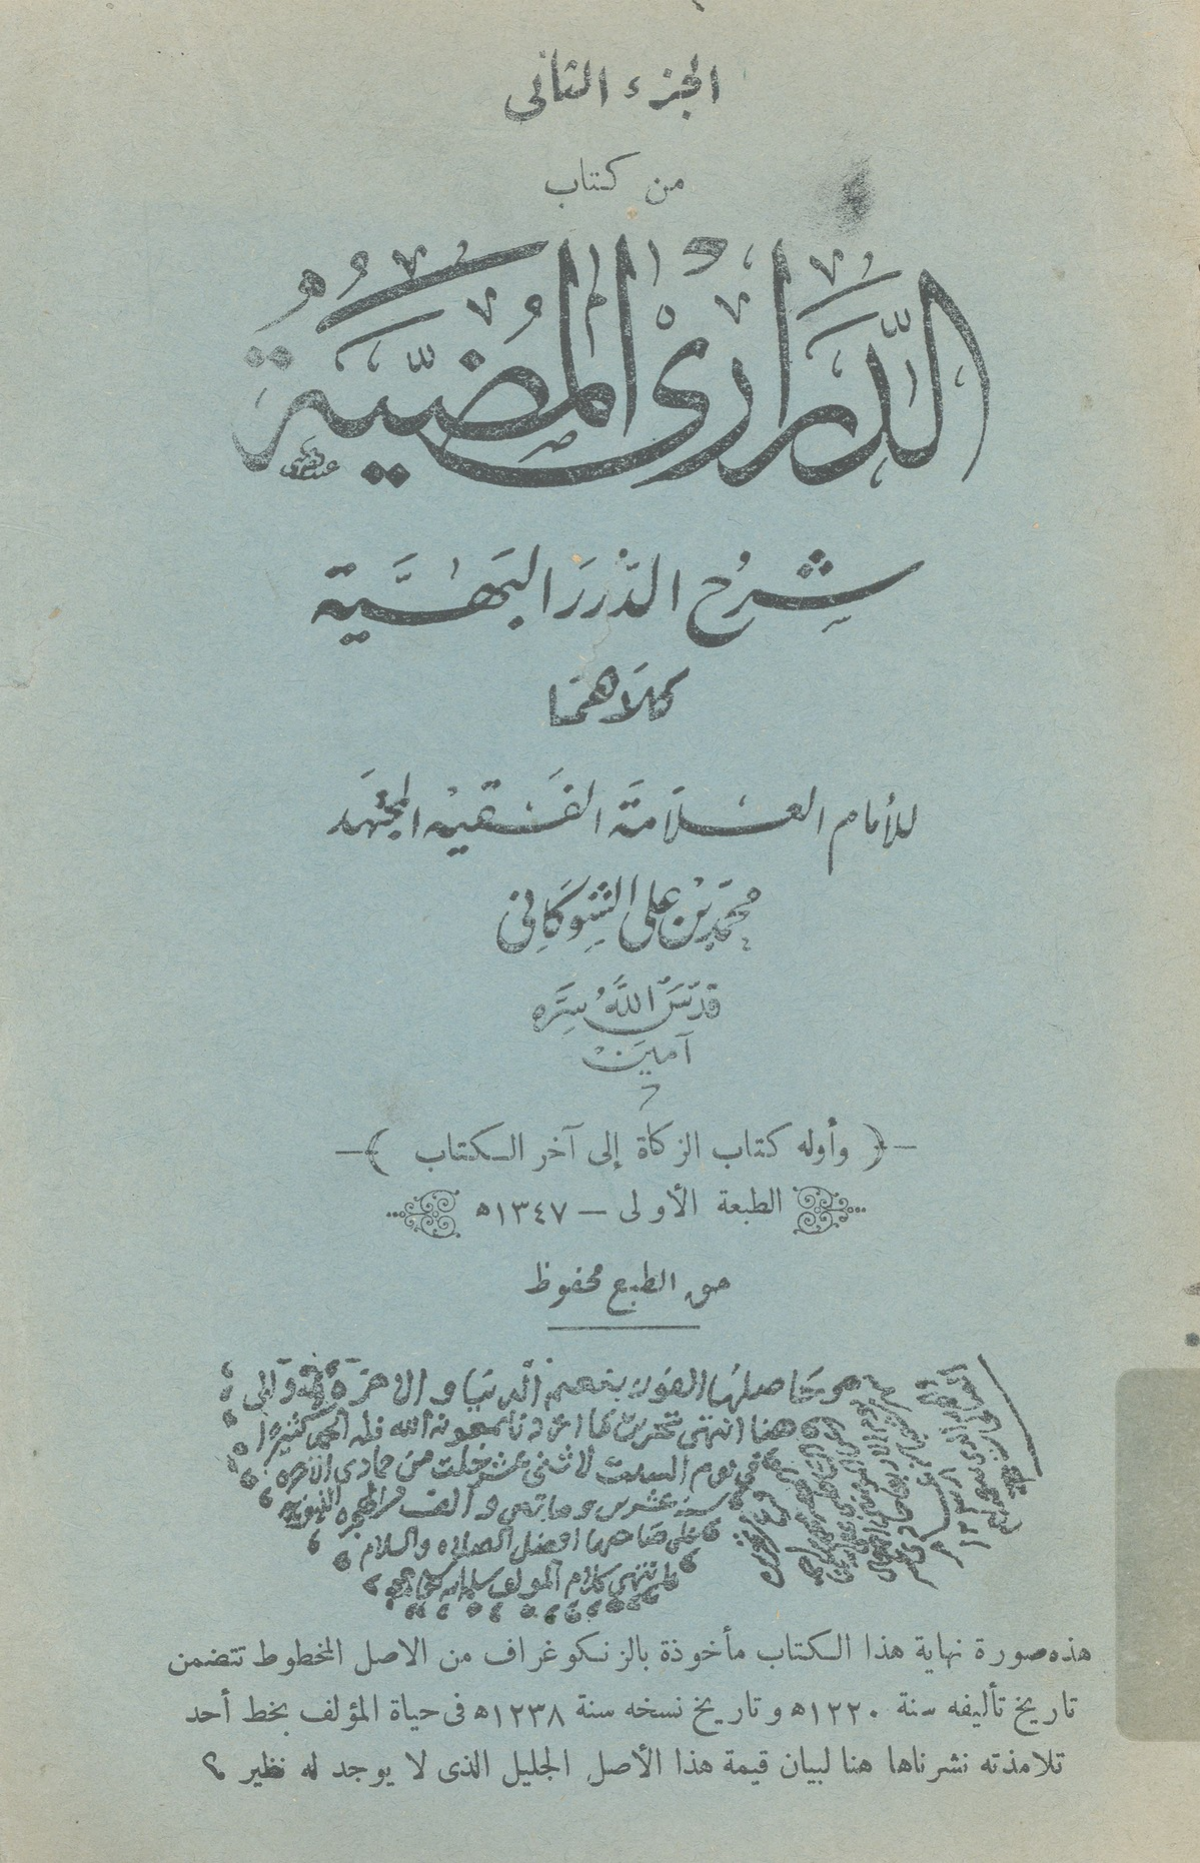 الجزء الثانى
من كتاب
الدَّرَارِىْ المُضِيَّةُ
شَرْحُ الدُّرَرِ البَهِيَّة
كلاَهُمَا
للأمام العَلاَمَة الفَقيْه المجتهَد
محَمَّد بْن على الشوكَانى
قدَّسَ اللهُ سِرَّه
آمين
وأوله كتاب الزكاة إلى آخر الكتاب
الطبعة الأولى — ١٣٤٧ه
حق الطبع محفوظ
هنا انتهى تحرير ما اردنا بمعونة الله فله الحمد كثيرا
فى يوم السبت لاثنى عشر خلت من جمادى الآخره
سنة عشرين وماتين والف من الهجره النبوية
على صاحبها افضل الصلاه والسلام
هذه صورة نهاية هذا الكتاب مأخوذة بالزنكوغراف من الاصل المخطوط تتضمن
تاريخ تأليفه سنة ١٢٢٠ه وتاريخ نسخه سنة ١٢٣٨ه فى حياة المؤلف بخط أحد
تلامذته نشرناها هنا لبيان قيمة هذا الأصل الجليل الذى لا يوجد له نظير ؟